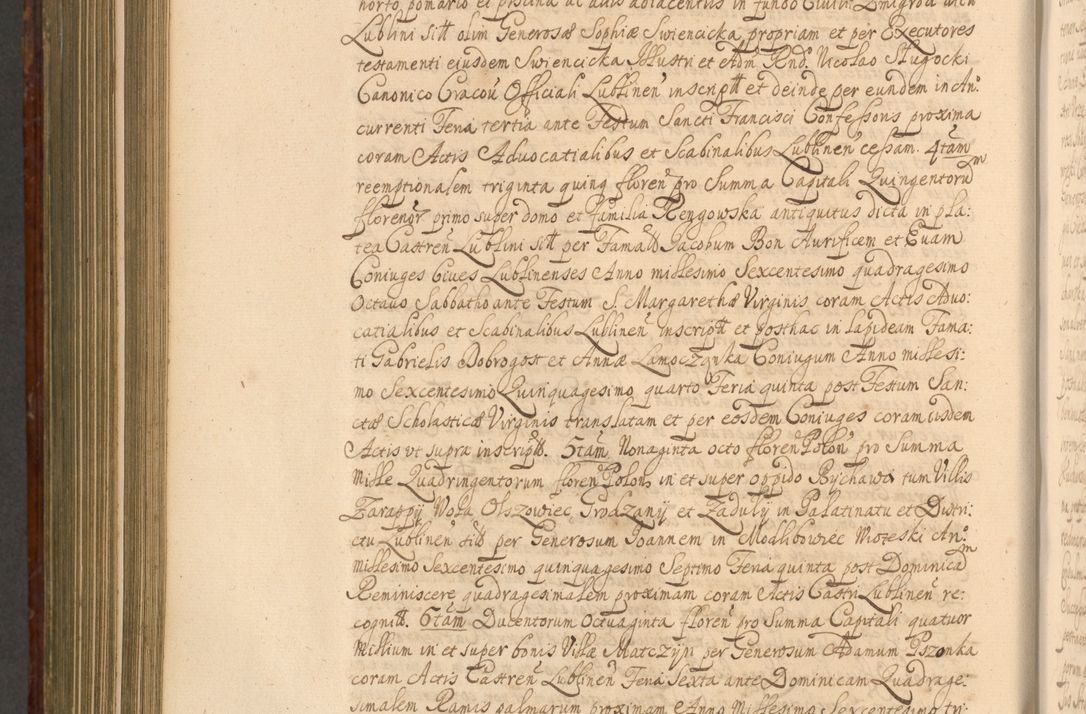 horto pomario et piscina ac aliis adiacentiis in fundo Civili
Lublini sitt olim Generosæ Sophiæ Swiencicka propriam et per Executores
testamenti eiusdem Swiencicka Illustri et Adm Rnd. Nicolao Slugocki
Canonico Cracou Officiali Lublinen inscriptt et deinde per eundem in An.
currenti Feria tertia ante Festum Sancti Francisci Confessoris proxima
coram Actis Aduocatialibus et Scabinalibus Lublinen cessam. 4tam
reemptionalem triginta quinq floren pro Summa Capitali Quingentorum
florenor primo super domo et familia Rengowska antiquitus dicta in pla:
tea Castren Lublini sitt per Famatt Jacobum Bon Aurificem et Euam
Coniuges Ciues Lublinenses Anno millesimo Sexcentesimo quadragesimo
Octauo Sabbatho ante Festum S. Margarethæ Virginis coram Actis Aduo:
catialibus et Scabinalibus Lublinen inscriptt et posthac in lapideam Fama:
ti Gabrielis Dobrogost et Annæ Lamoczanka Coniugum Anno millesi:
mo Sexcentesimo Quinquagesimo quarto Feria quinta post Festum San:
ctæ Scholasticæ Virginis translatam et per eosdem Coniuges coram iisdem
Actis vt supra inscriptt. 5tam Nonaginta octo floren Polon pro Summa
Mille Quadringentorum floren Polon in et super oppido Bychawa tum Villis
Zarappy Wola Olszowiec Grodzany et Zaduly in Palatinatu et Distri:
ctu Lublinen sitt per Generosum Joannem in Modlibowiec An.
millesimo Sexcentesimo quinquagesimo Septimo Feria quinta post Dominicam
Reminiscere quadragesimalem proximam coram Actis Castri Lublinen re:
cognitt. 6tam Ducentorum Octuaginta floren pro Summa Capitali quatuor
Millium in et super bonis Villæ Matczyn per Generosum Adamum Pszonka
coram Actis Castren Lublinen Feria Sexta ante Dominicam Quadrage:
simalem Ramis palmarum proximam Anno Millesimo Sexcentesimo tri: